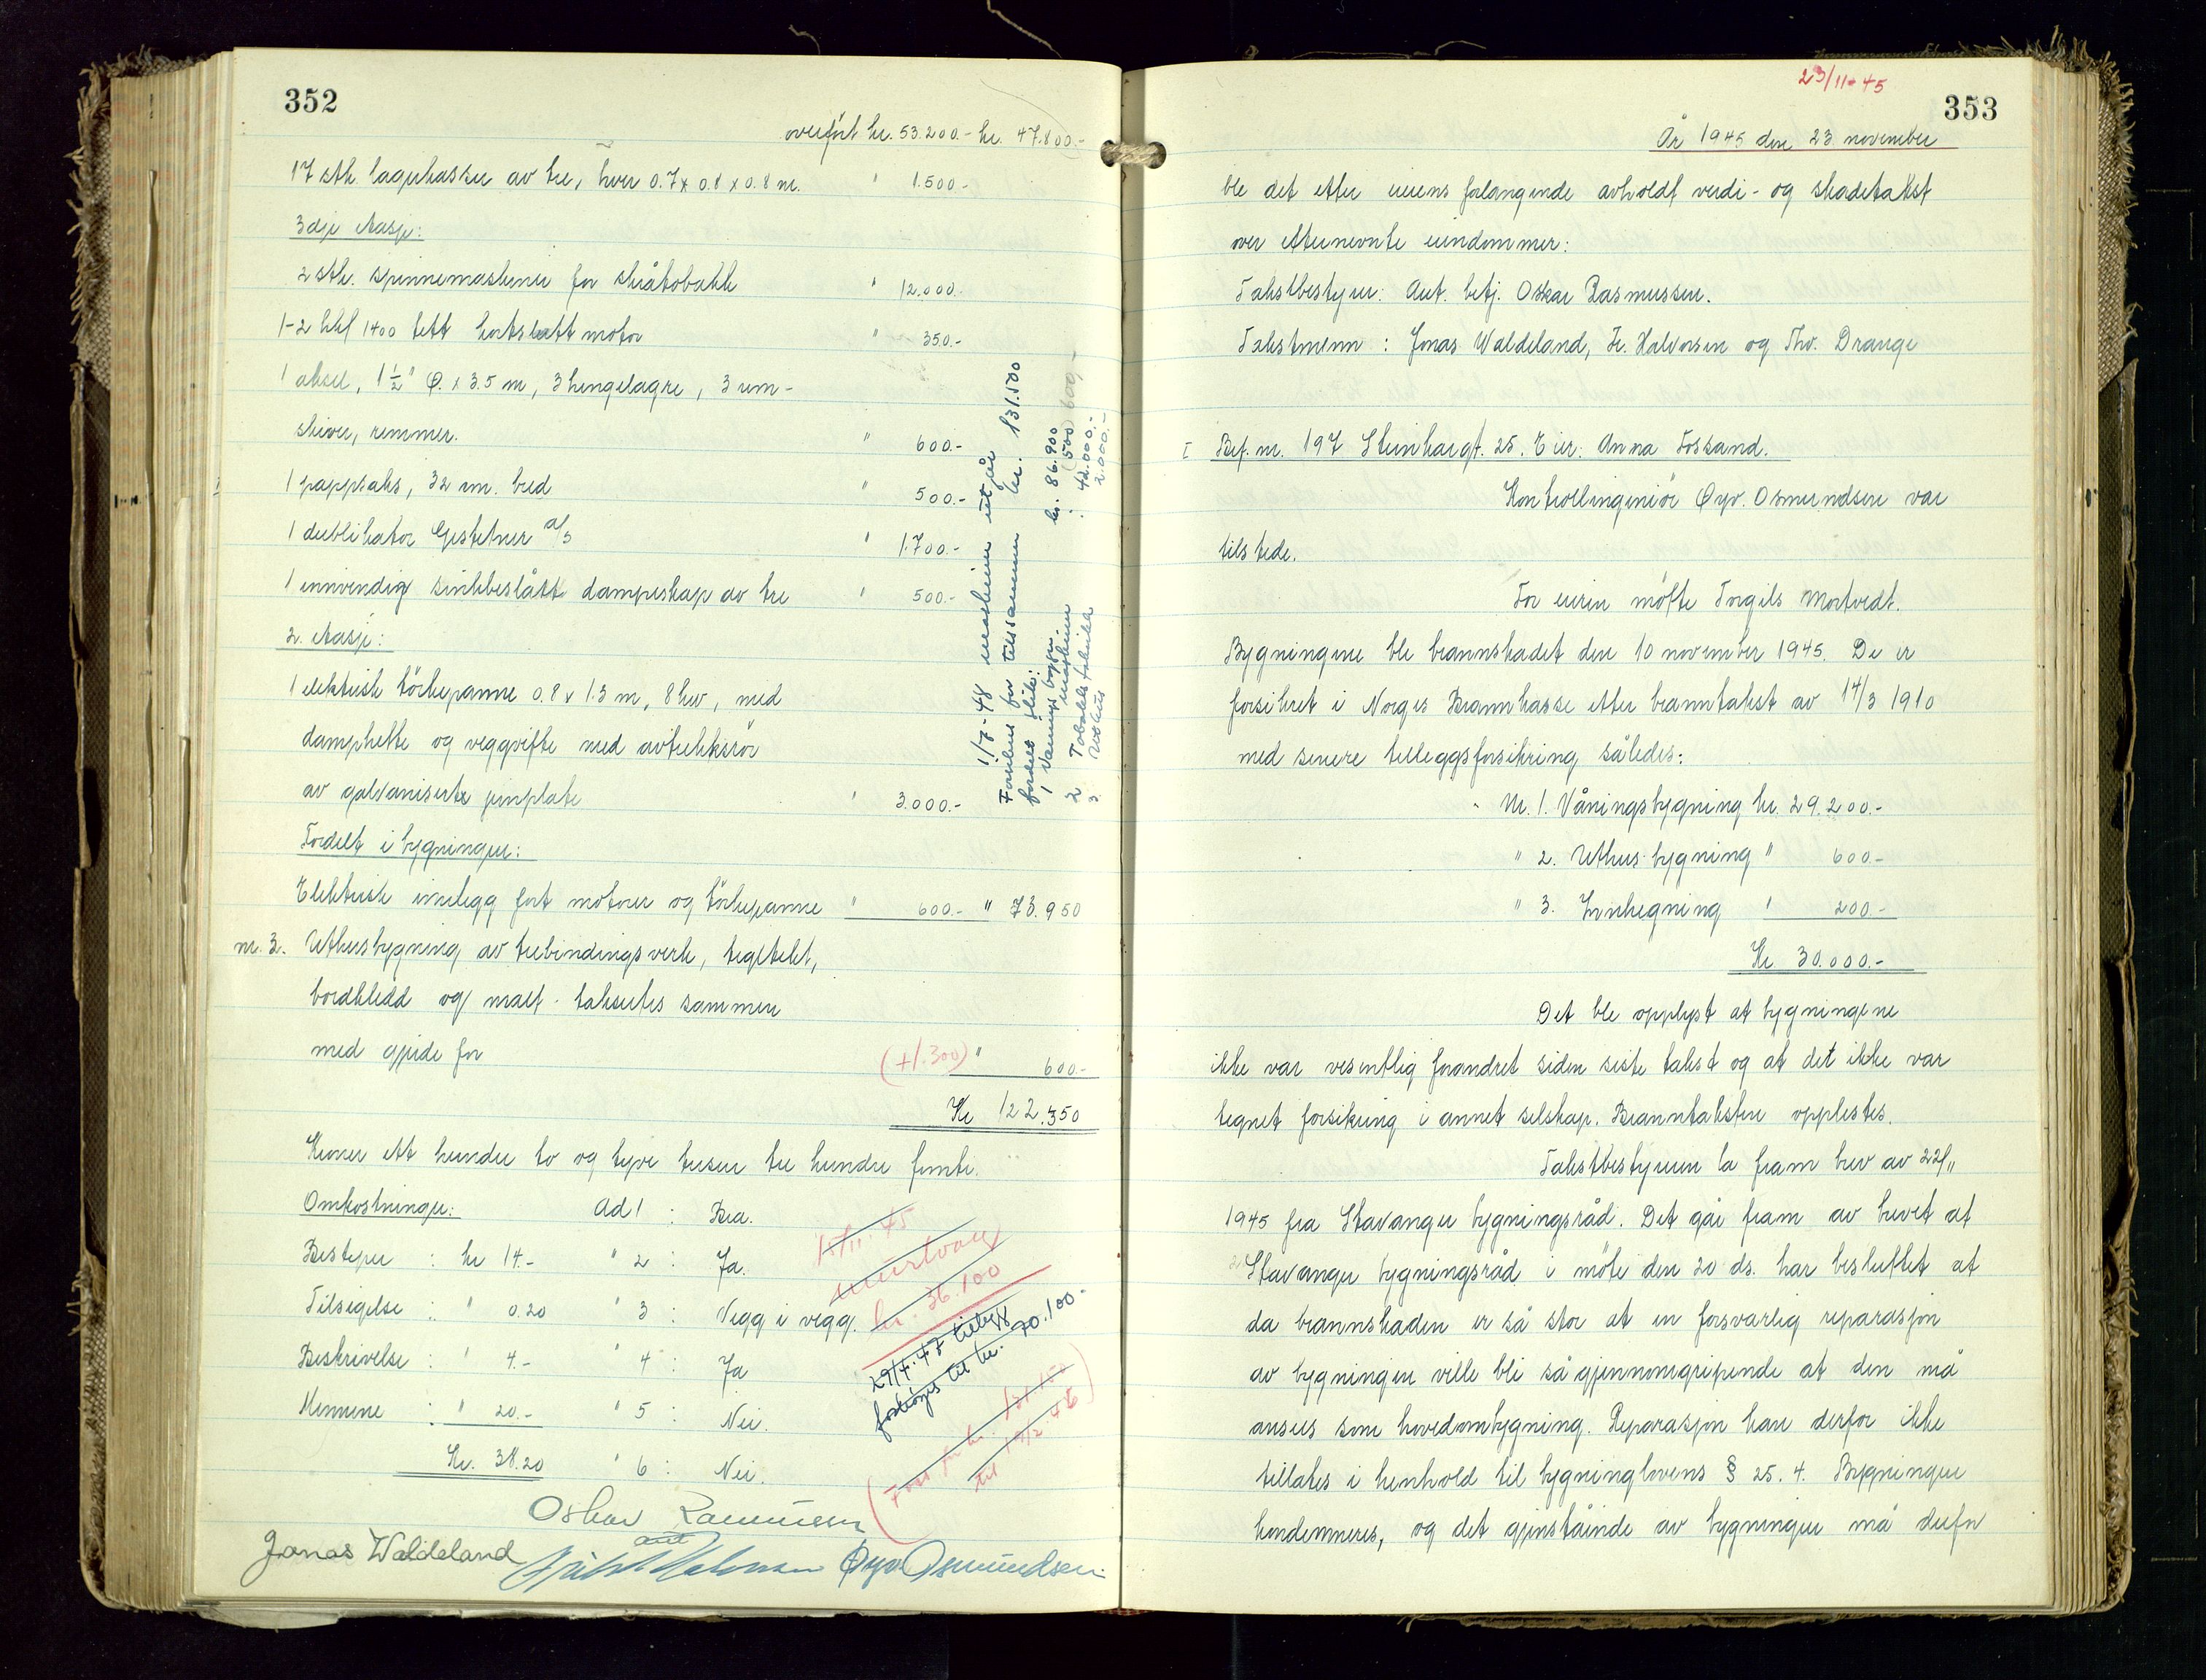 352
overført kr. 53.200.- kr. 47.800.-
17 stk. lagerkasser av tre, hver 0.7 x 0.8 x 0.8 m. " 1.500-
3dje etasje:
2 stk. spinnemaskiner for skråtobakk " 12.000.
1-2 hkf 1400 tett kortslutt motor " 350.-
1 aksel, 1 1/2" Ø. x 3.5 m, 3 hengelagre, 3 rem-
skiver, remmer. " 600.-
1 pappsaks, 32 cm. bred " 500.-
1 dublikator Gestetner a/s " 1.700.-
1 innvendig sinkbeslått dampeskap av tre " 500.-
2. etasje:
1 elektrisk törkepanne 0.8 x 1.3 m, 8 kw, med
damphette og veggvifte med avtrekksrör
av galvaniserte jernplate " 3.000.-
Fordelt i bygningen:
Elektrisk innlegg fort motorer og törkepanne " 600.- " 73.950
nr. 3. Uthusbygning av trebindingsverk, tegltekt,
bordkledd og malt. takseres sammen
med gjerde for (+1.300) " 600.-
Kr 122.350
Kroner ett hundre to og tyve tusen tre hundre femti.
Omkostninger: Ad 1 : Bra.
Bestyrer : kr 14.- " 2 : Ja.
Tilsigelse : " 0.20 " 3 : Vegg i vegg.
Beskrivelse : " 4.- " 4 : Ja
Mennene : " 20.- " 5 : Nei.
Kr. 38.20 " 6 : Nei.
kr. 36.100
29/4.47 tillegg
forhöyes til kr. 70.100.-
Oskar Rasmussen
aut
Jonas Waldeland Øyv. Osmundsen.
1/7-48 maskiner utgår
Forsikres for tilsammen kr. 131.500
fordelt slik:
1 Våningsbygn. kr. 86.900
" maskiner
2 Tobakksfabrikk " 42.000.-
3 Uthus 2.000.-
23/11-45
353
År 1945 den 23 november
ble det etter eierens forlangende avholdt verdi- og skadetakst
over etternevnte eiendommer:
Takstbestyrer: Aut. betj. Oskar Rasmussen.
Takstmenn : Jonas Waldeland, Fr. Halvorsen og Thv. Drange
I Bef. nr. 197 Steinkargt. 25. Eier: Anna Fossand.
Kontrollingeniör Øyv. Osmundsen var
tilstede.
For eieren møtte Torgils Mortvedt.
Bygningene ble brannskadet den 10 november 1945. De er
forsikret i Norges Brannkasse etter branntakst av 14/3 1910
med senere tilleggsforsikring således:
Nr. 1. Våningsbygning kr. 29.200.-
" 2. Uthusbygning " 600-
" 3. Innhegning " 200.-
Kr 30.000.-
Det ble opplyst at bygningene
ikke var vesentlig forandret siden siste takst og at det ikke var
tegnet forsikring i annet selskap. Branntaksten opplestes.
Takstbestyreren la fram brev av 22/11
1945 fra Stavanger bygningsråd. Det går fram av brevet at
Stavanger bygningsråd i möte den 20 ds. har besluttet at
da brannskaden er så stor at en forsvarlig reparasjon
av bygningen ville bli så gjennomgripende at den må
ansees som hovedombygning. Reparasjon kan derfor ikke
tillates i henhold til bygninglovens § 25. 4. Bygningen
kondemneres, og det gjenstående av bygningen må derfor